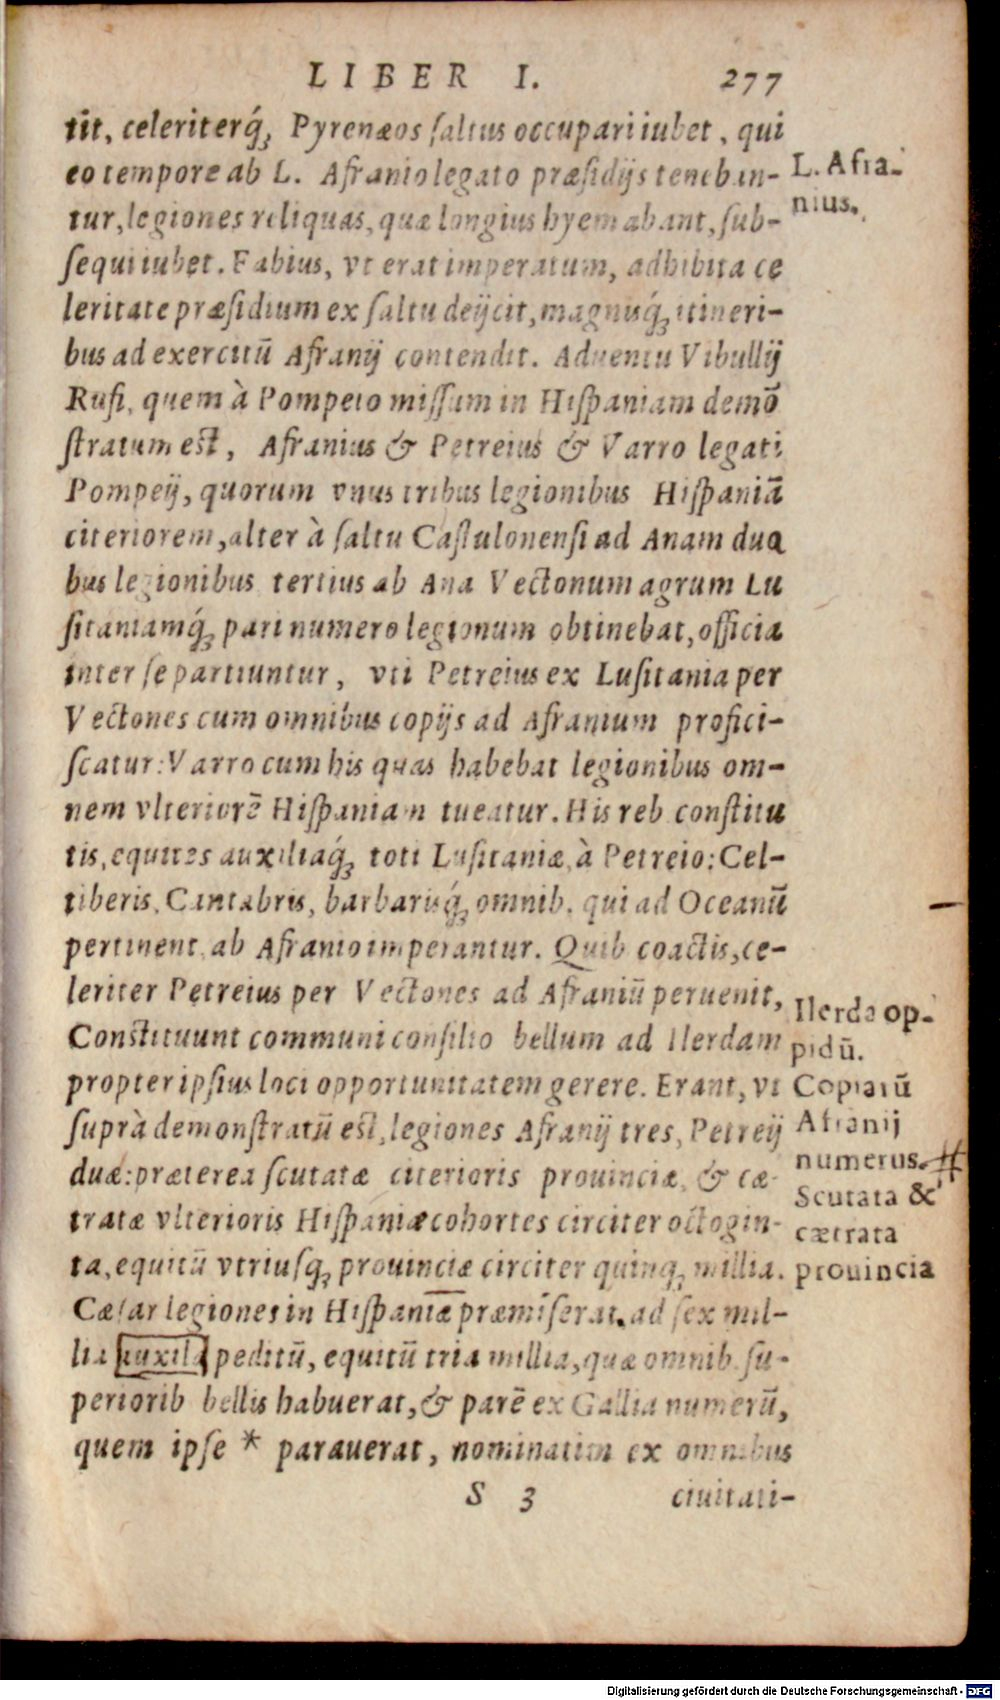 LIBER I. 277
tit, celeriterq́; Pyrenæos saltus occupari iubet, qui
eo tempore ab L. Afranio legato præsidijs teneban-
tur, legiones reliquas, quæ longius hyemabant, sub-
sequi iubet. Fabius, vt erat imperatum, adhibita ce
leritate præsidium ex saltu deijcit, magnisq́; itineri-
bus ad exercitū Afranij contendit. Aduentu Vibullij
Rufi, quem à Pompeio missum in Hispaniam demō
stratum est, Afranius & Petreius & Varro legati
Pompeij, quorum vnus tribus legionibus Hispaniā
citeriorem, alter à saltu Castulonensi ad Anam dua
bus legionibus tertius ab Ana Vectonum agrum Lu
sitaniamq́; pari numero legionum obtinebat, officia
inter se partiuntur, vti Petreius ex Lusitania per
Vectones cum omnibus copijs ad Afranium profici-
scatur: Varro cum his quas habebat legionibus om-
nem vlteriorē Hispaniam tueatur. His reb constitu
tis, equites auxiliaq́; toti Lusitaniæ, à Petreio: Cel-
tiberis, Cantabris, barbarisq́; omnib. qui ad Oceanū
pertinent, ab Afranio imperantur. Quib coactis, ce-
leriter Petreius per Vectones ad Afraniū peruenit,
Constituunt communi consilio bellum ad Ilerdam
propter ipsius loci opportunitatem gerere. Erant, vt
suprà demonstratū est, legiones Afranij tres, Petreij
duæ: præterea scutatæ citerioris prouinciæ, & cæ-
tratæ vlterioris Hispaniæ cohortes circiter octogin-
ta, equitū vtriusq; prouinciæ circiter quinq; millia.
Cæsar legiones in Hispaniā præmiserat, ad sex mil-
lia auxila peditū, equitū tria millia, quæ omnib. su-
periorib bellis habuerat, & parē ex Gallia numerū,
quem ipse * parauerat, nominatim ex omnibus
S 3 ciuitati-
L. Afra-
nius.
Ilerda op-
pidū.
Copiarū
Afranij
numerus.
Scutata &
cætrata
prouincia
Digitalisierung gefördert durch die Deutsche Forschungsgemeinschaft - DFG